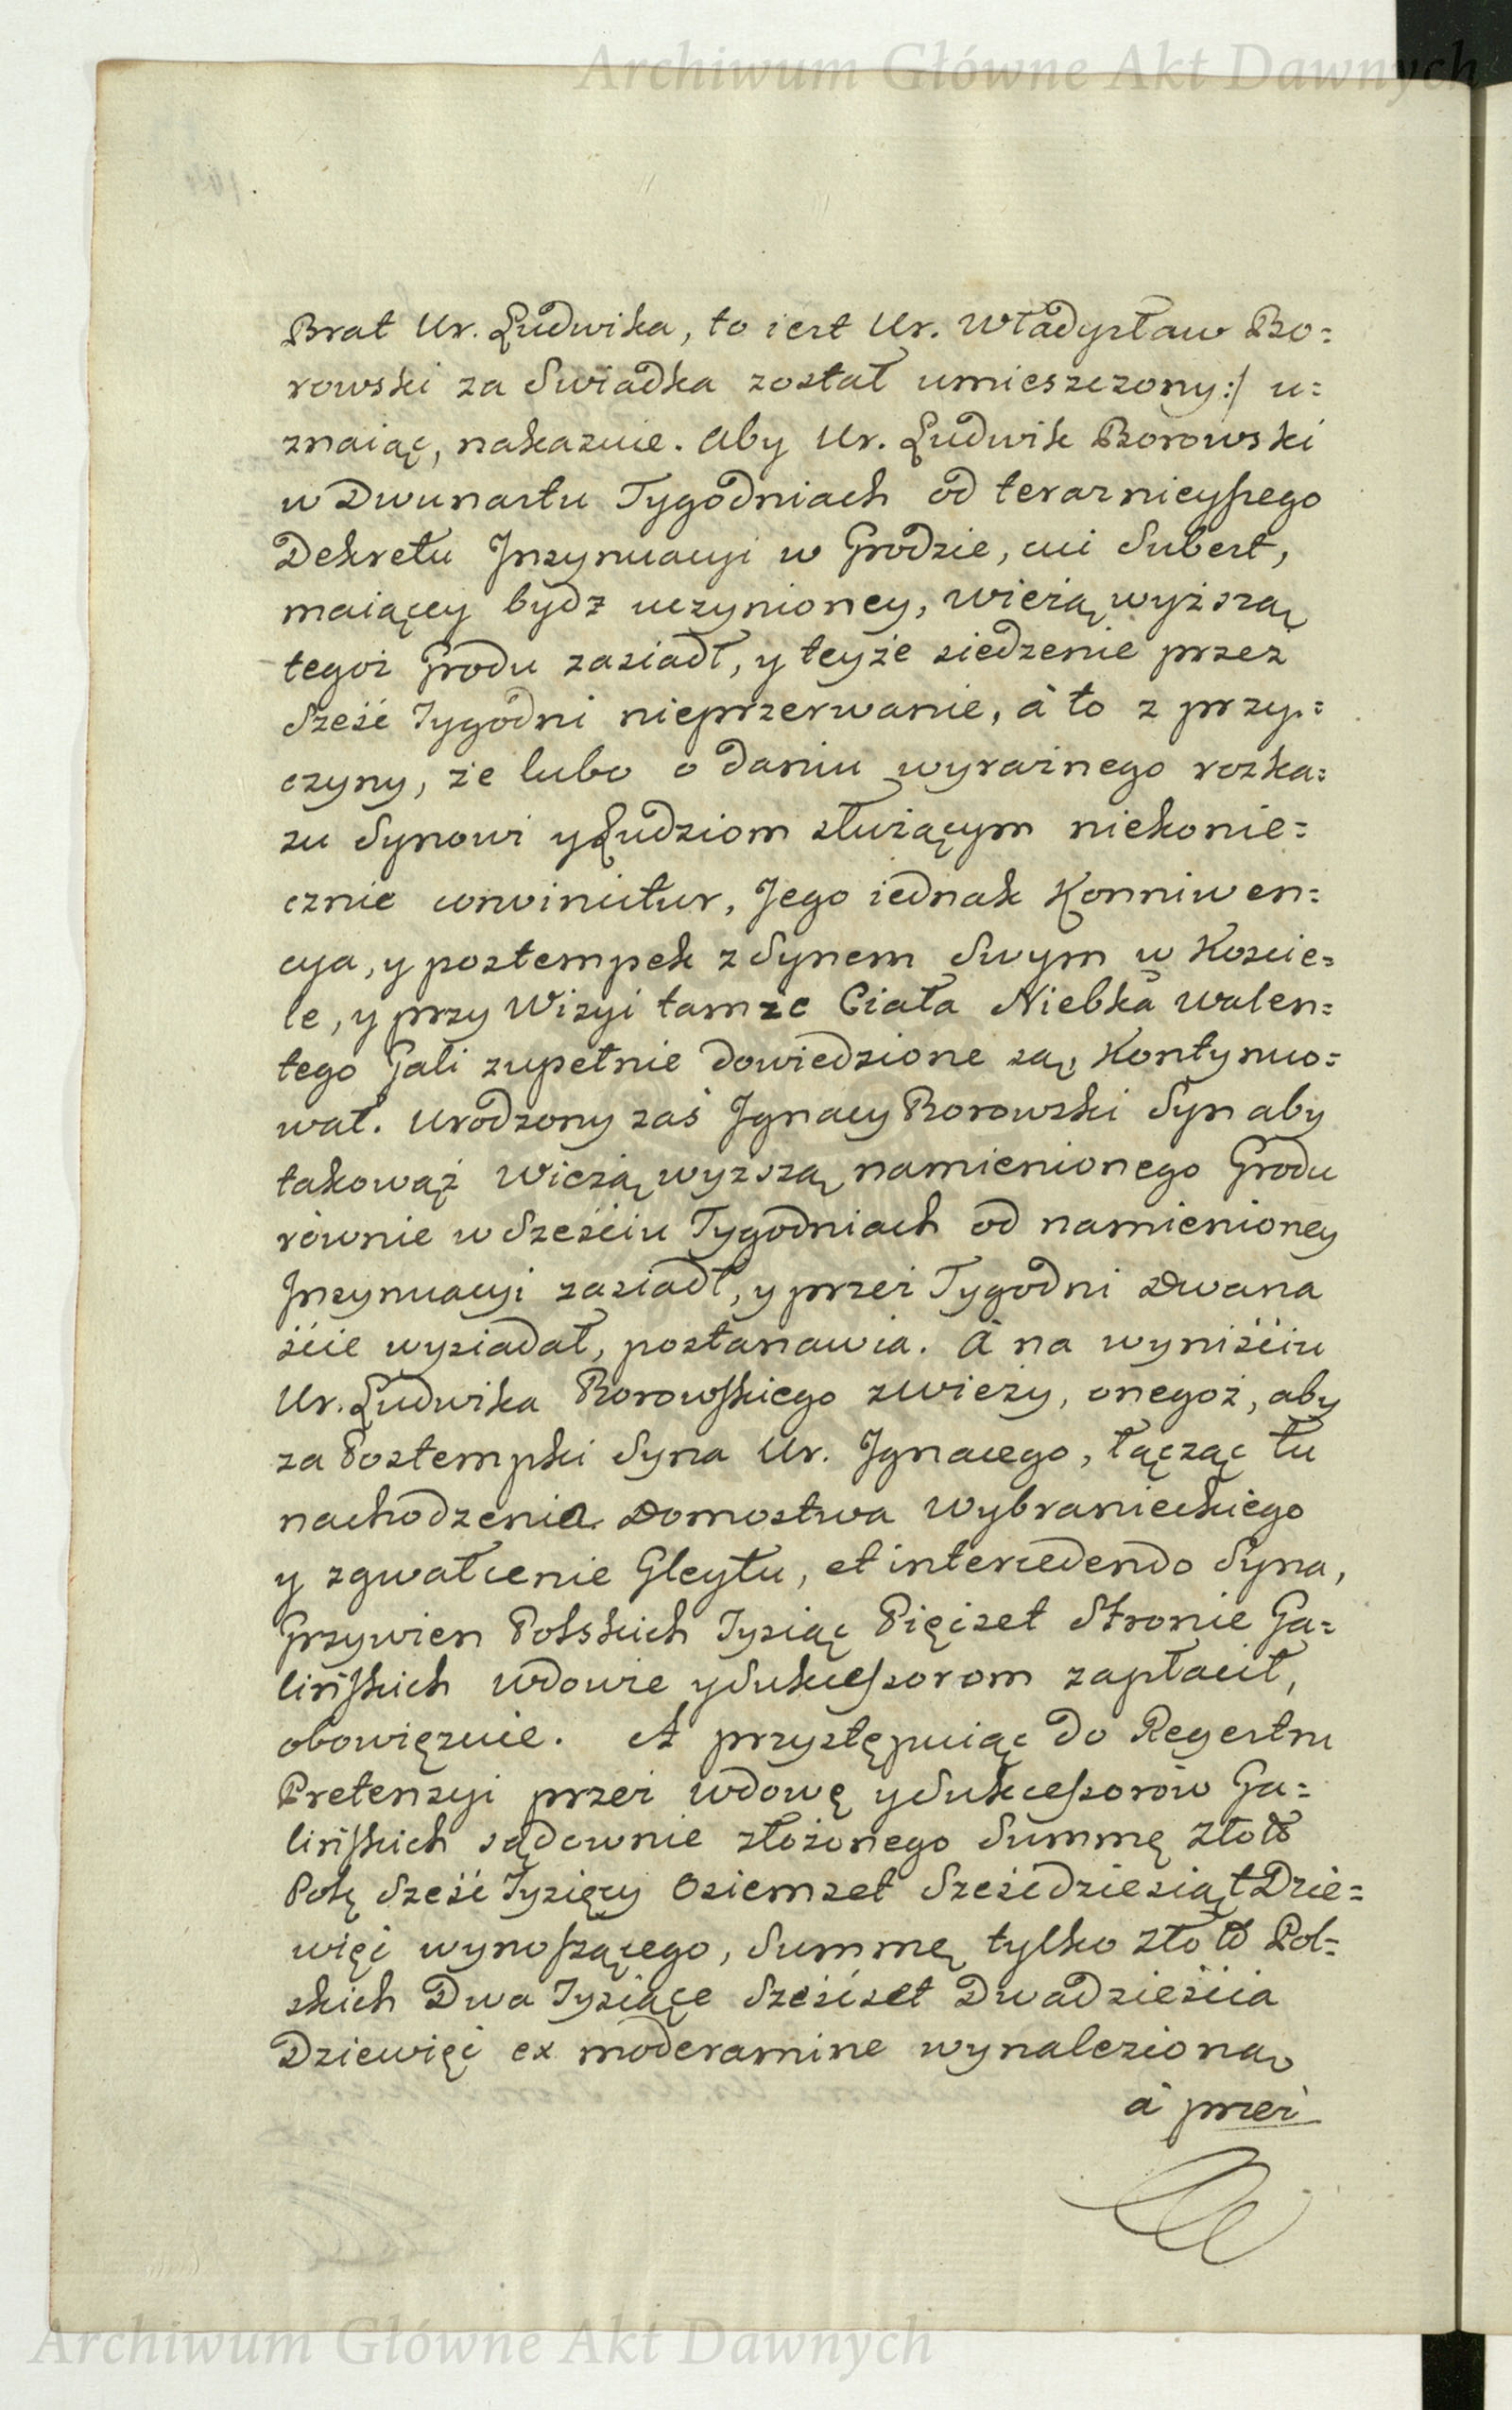 Archiwum Główne Akt Dawnych
Brat Ur. Ludwika, to iest Ur. Władysław Bo=
rowski za Swiadka został umieszczony:/ u=
znaiąc, nakazuie. Aby Ur. Ludwik Borowski
w Dwunastu Tygodniach od teraznieyszego
Dekretu Jnsynuacyi w Grodzie, cui Subest,
maiącey bydz uczynioney, wieżą wyższą
tegoż Grodu zasiadł, y teyże siedzenie przez
Sześć Tygodni nieprzerwanie, á to z przy=
czyny, że lubo o daniu wyraźnego rozka=
zu Synowi y Ludziom służącym niekonie=
cznie convincitur, Jego iednak Konniwen=
cya, y postempek z Synem Swym w Koscie=
le, y przy Wizyi tamże Ciała Niebka Walen=
tego Gali zupełnie dowiedzione są, Kontynuo=
wał. Urodzony zaś Jgnacy Borowski Syn aby
takowąż Wieżą wyższą namienionego Grodu
równie w Sześciu Tygodniach od namienioney
Jnsynuacyi zasiadł, y przez Tygodni Dwana
ście wysiadał, postanawia. Á na wyniściu
Ur. Ludwika Borowskiego z wieży, onegoż, aby
za Postempki Syna Ur. Jgnacego, łącząc tu
nachodzenia Domostwa Wybranieckiego
y zgwałcenie Gleytu, et intercedendo Syna,
Grzywien Polskich Tysiąc Pięćset Stronie Ga=
lińskich Wdowie y Sukcessorom zapłacił,
obowięzuie. A przystępuiąc do Regestru
Pretensyi przez Wdowę y Sukcessorów Ga=
lińskich sądownie złożonego Summę Złotꝏ
Polę Sześć Tysięcy Osiemset Sześćdziesiąt Dzie=
więć wynoszącego, Summę tylko Złotꝏ Pol=
skich Dwa Tysiące Sześćset Dwadzieścia
Dziewięć ex moderamine wynalezioną
á przez
Archiwum Główne Akt Dawnych